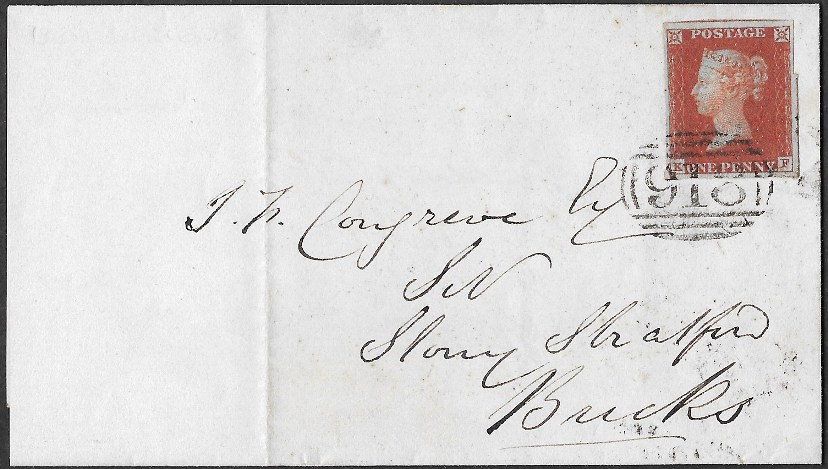 POSTAGE
K ONE PENNY F
918
J. W. Congreve Esq
Stony Stratford
Bucks